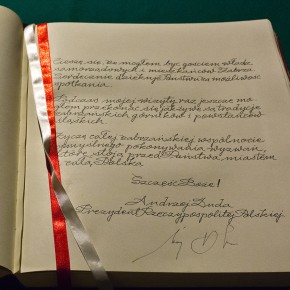 Cieszę się, że mogłem być gościem władz
samorządowych i mieszkańców Zabrza.
Serdecznie dziękuję Państwu za możliwość
spotkania.
Podczas mojej wizyty raz jeszcze mo-
głem przekonać się jak żywe są tradycje
zabrzańskich górników i powstańców
śląskich.
Życzę całej zabrzańskiej wspólnocie
pomyślnego pokonywania wyzwań,
które stoją przed Państwa miastem
i całą Polską.
Szczęść Boże!
Andrzej Duda
Prezydent Rzeczypospolitej Polskiej